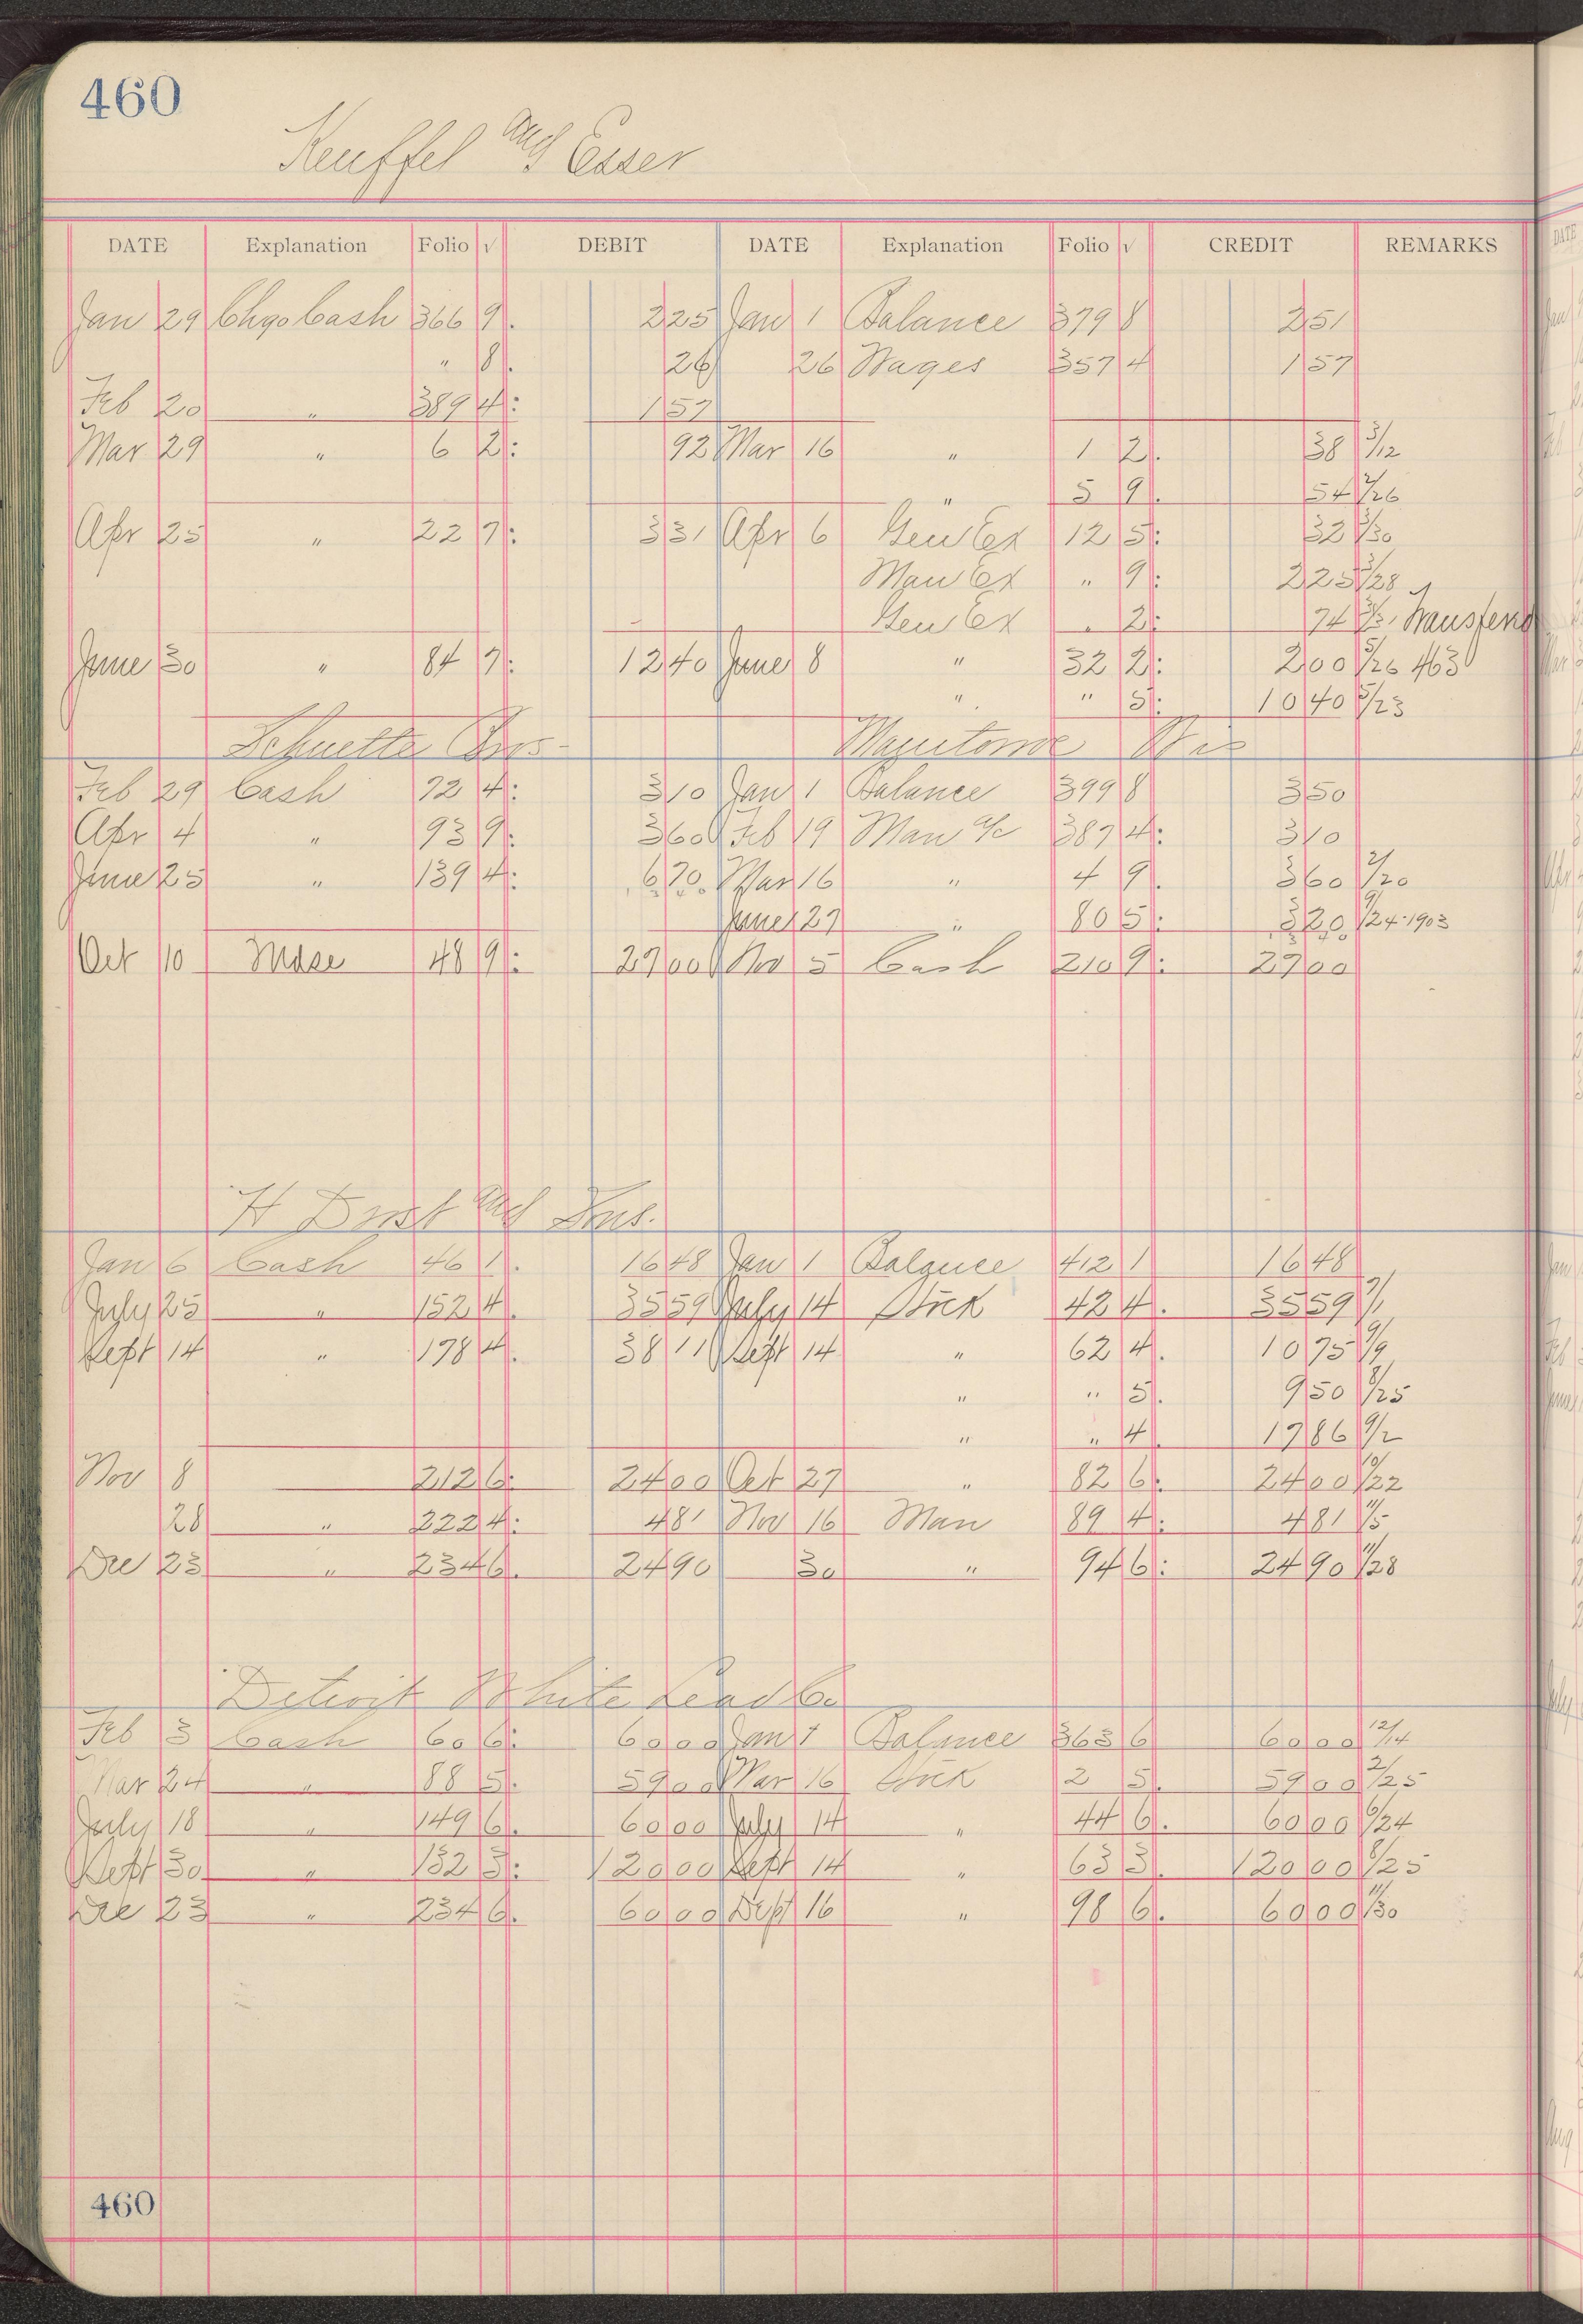 460
Keuffel and Esser
DATE Explanation Folio √ DEBIT DATE Explanation Folio √ CREDIT REMARKS
Jan 29 Chgo Cash 366 9. 225 Jan 1 Balance 379 8 251
" 8. 26 26 Wages 357 4 157
Feb 20 " 389 4: 157
Mar 29 " 6 2: 92 Mar 16 " 1 2. 38 3/12
" 5 9. 54 2/26
Apr 25 " 22 7: 331 Apr 6 Gen Ex 12 5: 32 3/30
Man Ex " 9: 225 3/28
Gen Ex " 2: 74 3/31 Transferd
June 30 " 84 7: 1240 June 8 " 32 2: 200 5/26 463
" " 5: 1040 5/23
Schuette Bros- Wis
Feb 29 Cash 72 4: 310 Jan 1 Balance 399 8 350
Apr 4 " 93 9: 360 Feb 19 Man a/c 387 4: 310
June 25 " 139 4: 670 Mar 16 " 4 9. 360 2/20
June 27 " 80 5: 320 9/24-1903
Oct 10 Mdse 48 9: 2700 Nov 5 Cash 210 9: 2700
H Drost and Sons.
Jan 6 Cash 46 1. 1648 Jan 1 Balance 412 1 1648
July 25 " 152 4. 3559 July 14 Stock 42 4. 3559 7/1
Sept 14 " 178 4. 3811 Sept 14 " 62 4. 1075 9/9
" " 5. 950 8/25
" " 4. 1786 9/2
Nov 8 212 6: 2400 Oct 27 " 82 6: 2400 10/22
28 " 222 4: 481 Nov 16 Man 89 4: 481 11/5
Dec 23 " 234 6. 2490 30 " 94 6: 2490 11/28
Detroit White Lead Co
Feb 3 Cash 60 6: 6000 Jan 1 Balance 363 6 6000 12/14
Mar 24 " 88 5. 5900 Mar 16 Stock 2 5. 5900 2/25
July 18 " 149 6. 6000 July 14 " 44 6. 6000 6/24
Sept 30 " 132 3: 12000 Sept 14 " 63 3. 12000 8/25
Dec 23 " 234 6. 6000 16 " 98 6. 6000 11/30
460